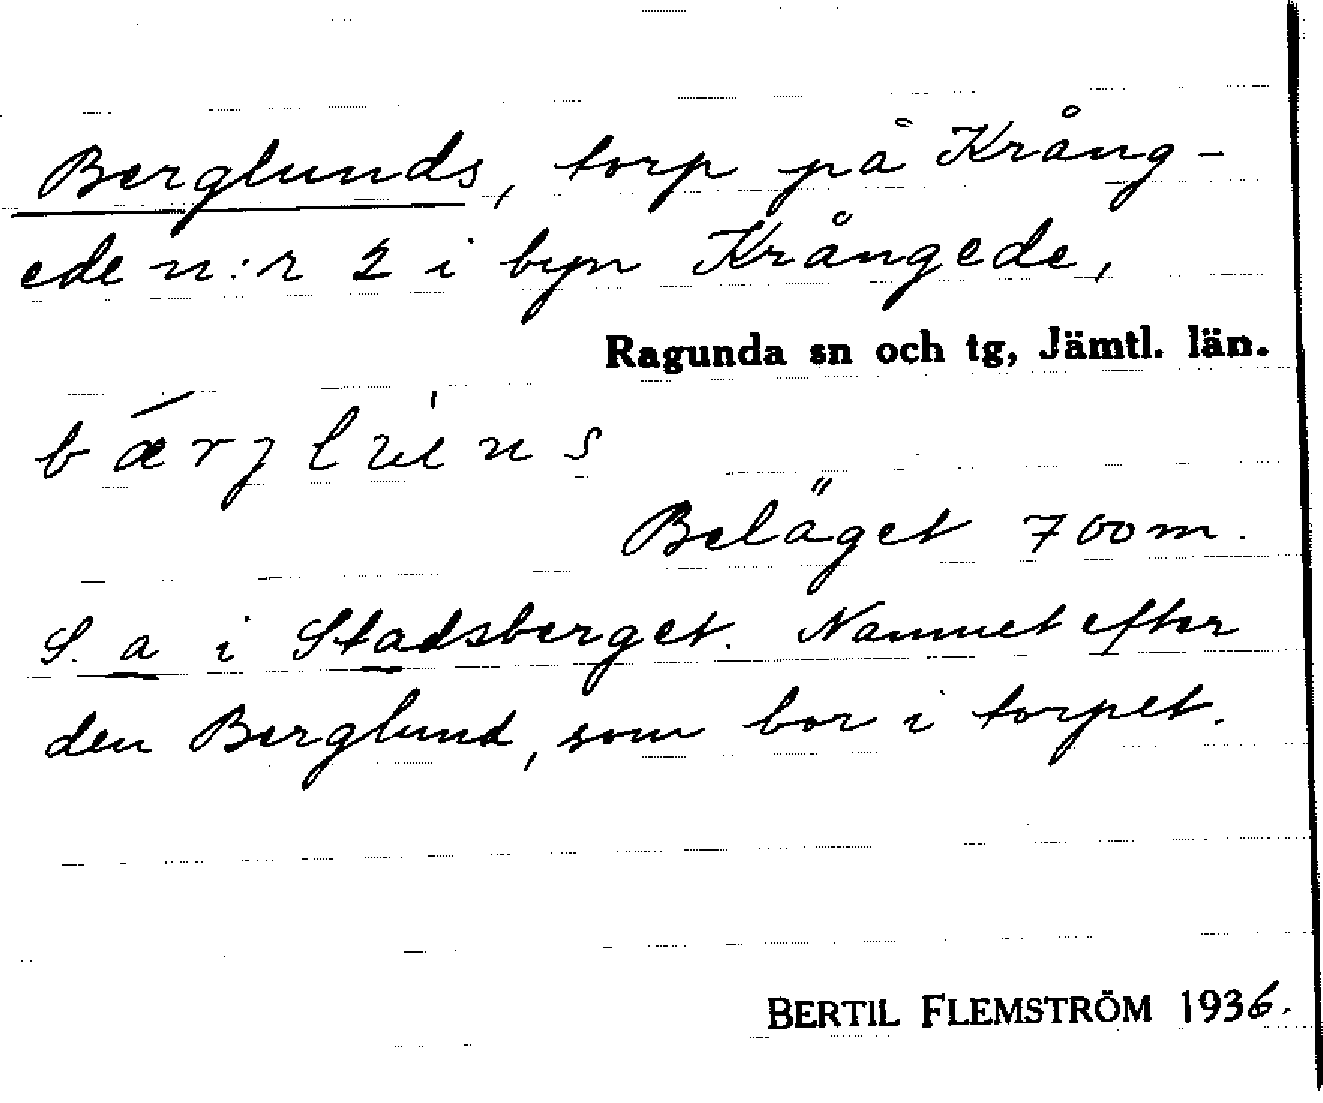 Berglunds, torp på Kräng-
ede n:r 2 i byn Krångede,
Ragunda sn och tg, Jämtl. län.
Beläget 700 m.
S. a i Stadsberget. Namnet efter
den Berglund, som bor i torpet.
BERTIL FLEMSTRÖM 1936.